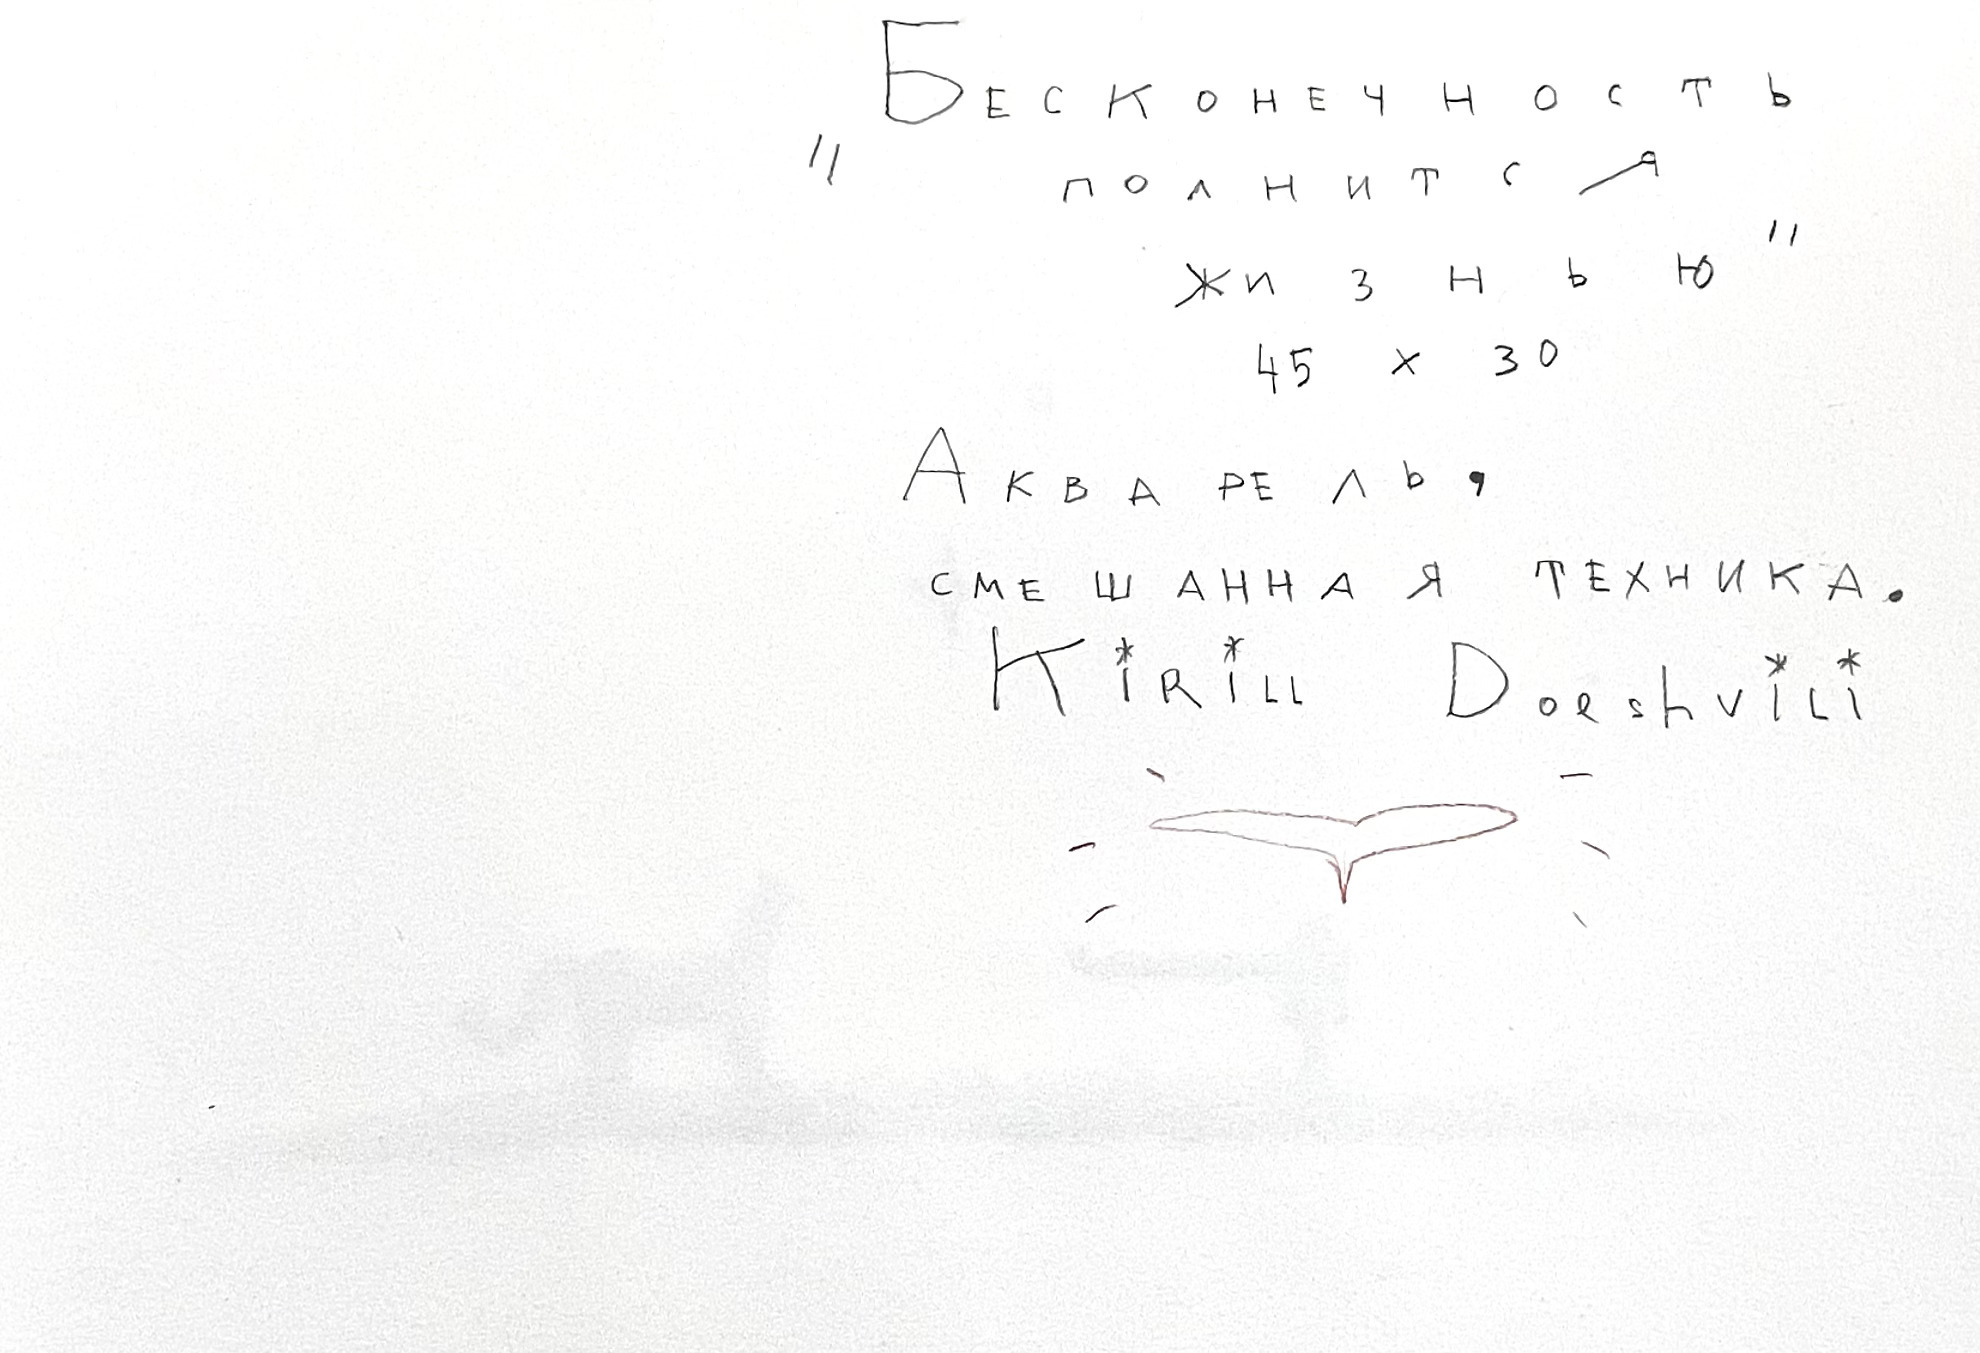 "Бесконечность
полнится
жизнью"
45 x 30
Акварель,
смешанная техника.
Kirill Doeshvili